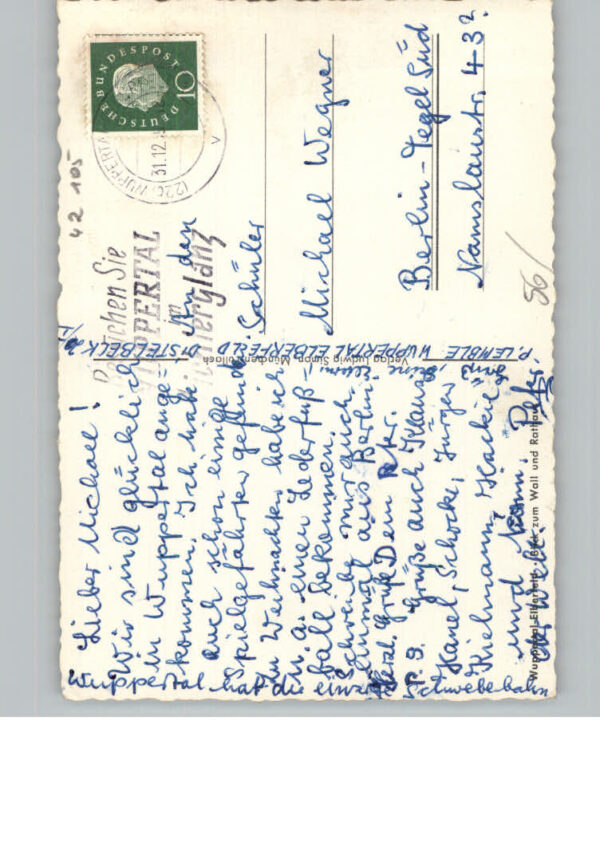 Lieber Michael!
Wir sind glücklich
in Wuppertal ange-
kommen. Ich habe
auch schon einige
Spielgefährten gefunden.
Zu Weihnachten habe ich
u. a. einen Lederfuß-
ball bekommen.
Schreibe mir auch
einmal aus Berlin.
Herzl. Grüße Dein Peter.
P.S. Grüße auch Klaus
Kanel, Schocke, Jürgen
Kielmann, Hacki
und
Wuppertal hat die Schwebebahn
P. LEMBLE WUPPERTAL ELBERFELD
Verlag Ludwig Simon, München-Pullach
Wuppertal-Elberfeld · Blick zum Wall und Rathaus
DEUTSCHE BUNDESPOST
10
(22c) WUPPERTAL
31.12.
v
42 105
Besuchen Sie
WUPPERTAL
im
An den
Schüler
Michael Wegner
Berlin-Tegel Süd
Namslaustr. 43?
56/